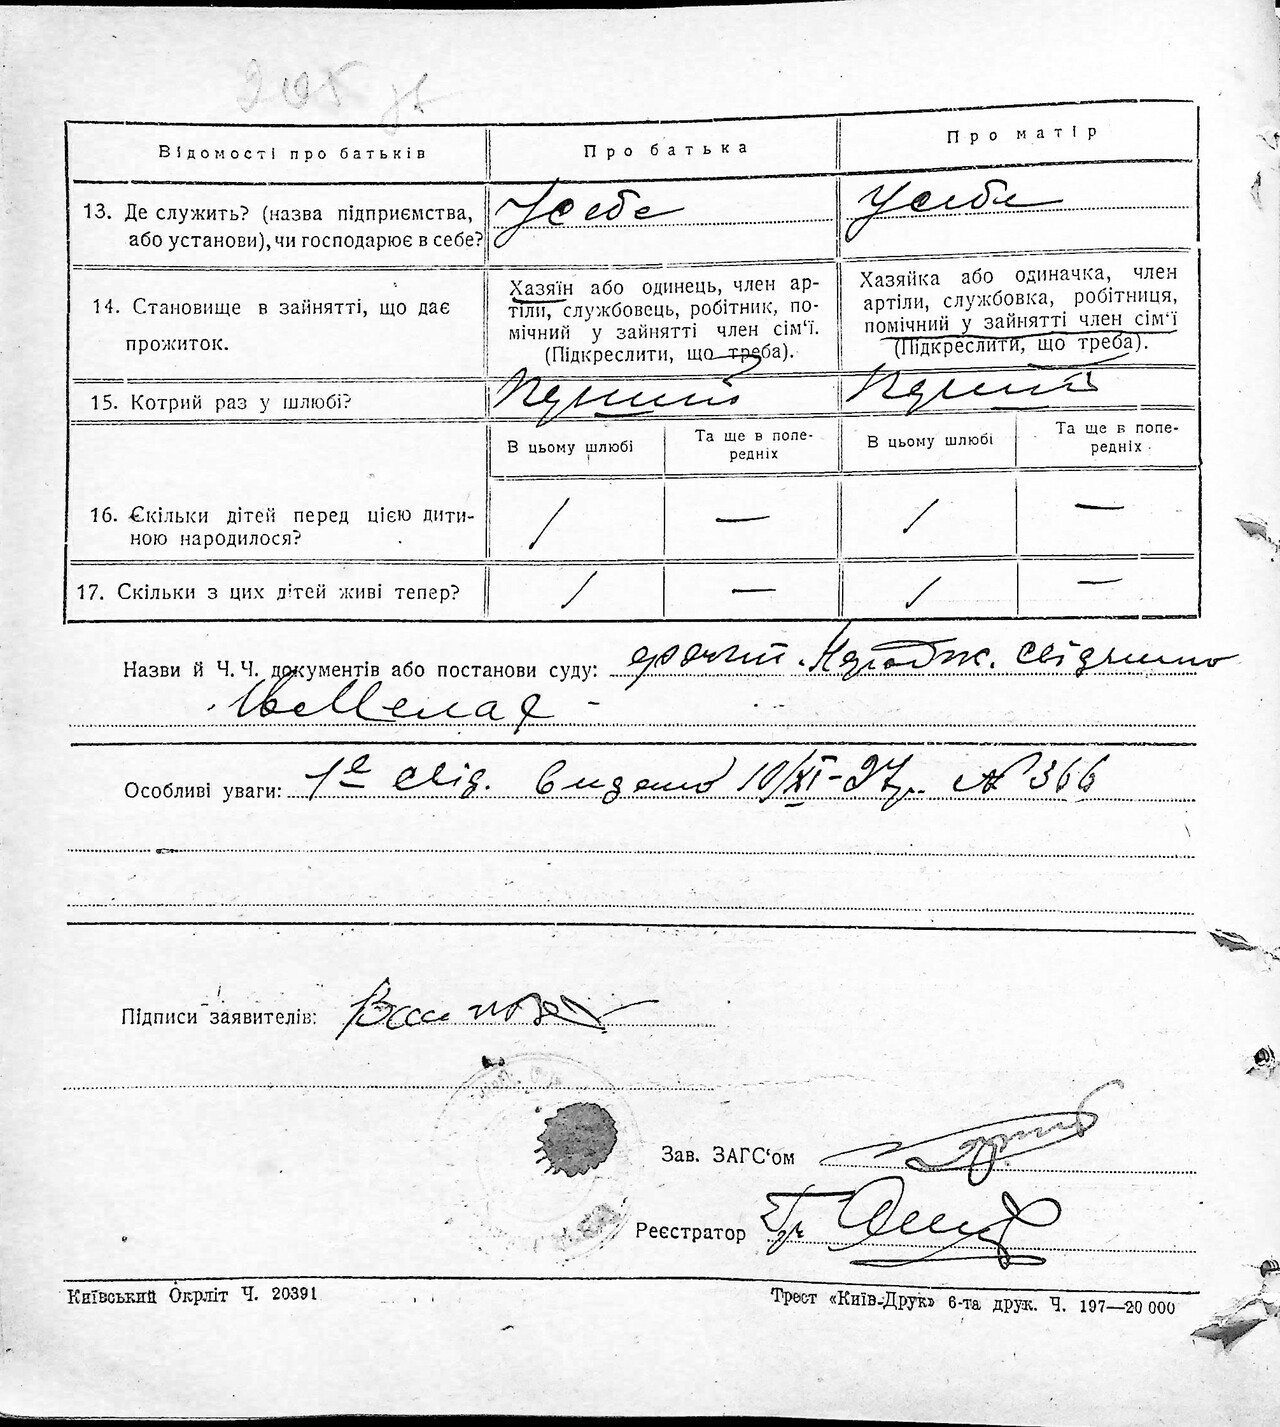 Відомості про батьків
Про батька
Про матір
13. Де служить? (назва підприємства,
або установи), чи господарює в себе?
У себе
У себе
14. Становище в зайнятті, що дає
прожиток.
Хазяїн або одинець, член ар-
тіли, службовець, робітник, по-
мічний у зайнятті член сім'ї.
(Підкреслити, що треба).
Хазяйка або одиначка, член
артіли, службовка, робітниця,
помічний у зайнятті член сім'ї
(Підкреслити, що треба).
15. Котрий раз у шлюбі?
В цьому шлюбі
Та ще в попе-
редніх
В цьому шлюбі
Та ще в попе-
редніх
16. Скільки дітей перед цією дити-
ною народилося?
/
—
/
—
17. Скільки з цих дітей живі тепер?
/
—
/
—
Назви й Ч. Ч. документів або постанови суду:
Особливі уваги: 1е свід. видано 10/XI-27р. № 366
Підписи заявителів:
Зав. ЗАГС'ом
Реєстратор
Київський Окрліт Ч. 20391
Трест «Київ-Друк» 6-та друк. Ч. 197—20 000